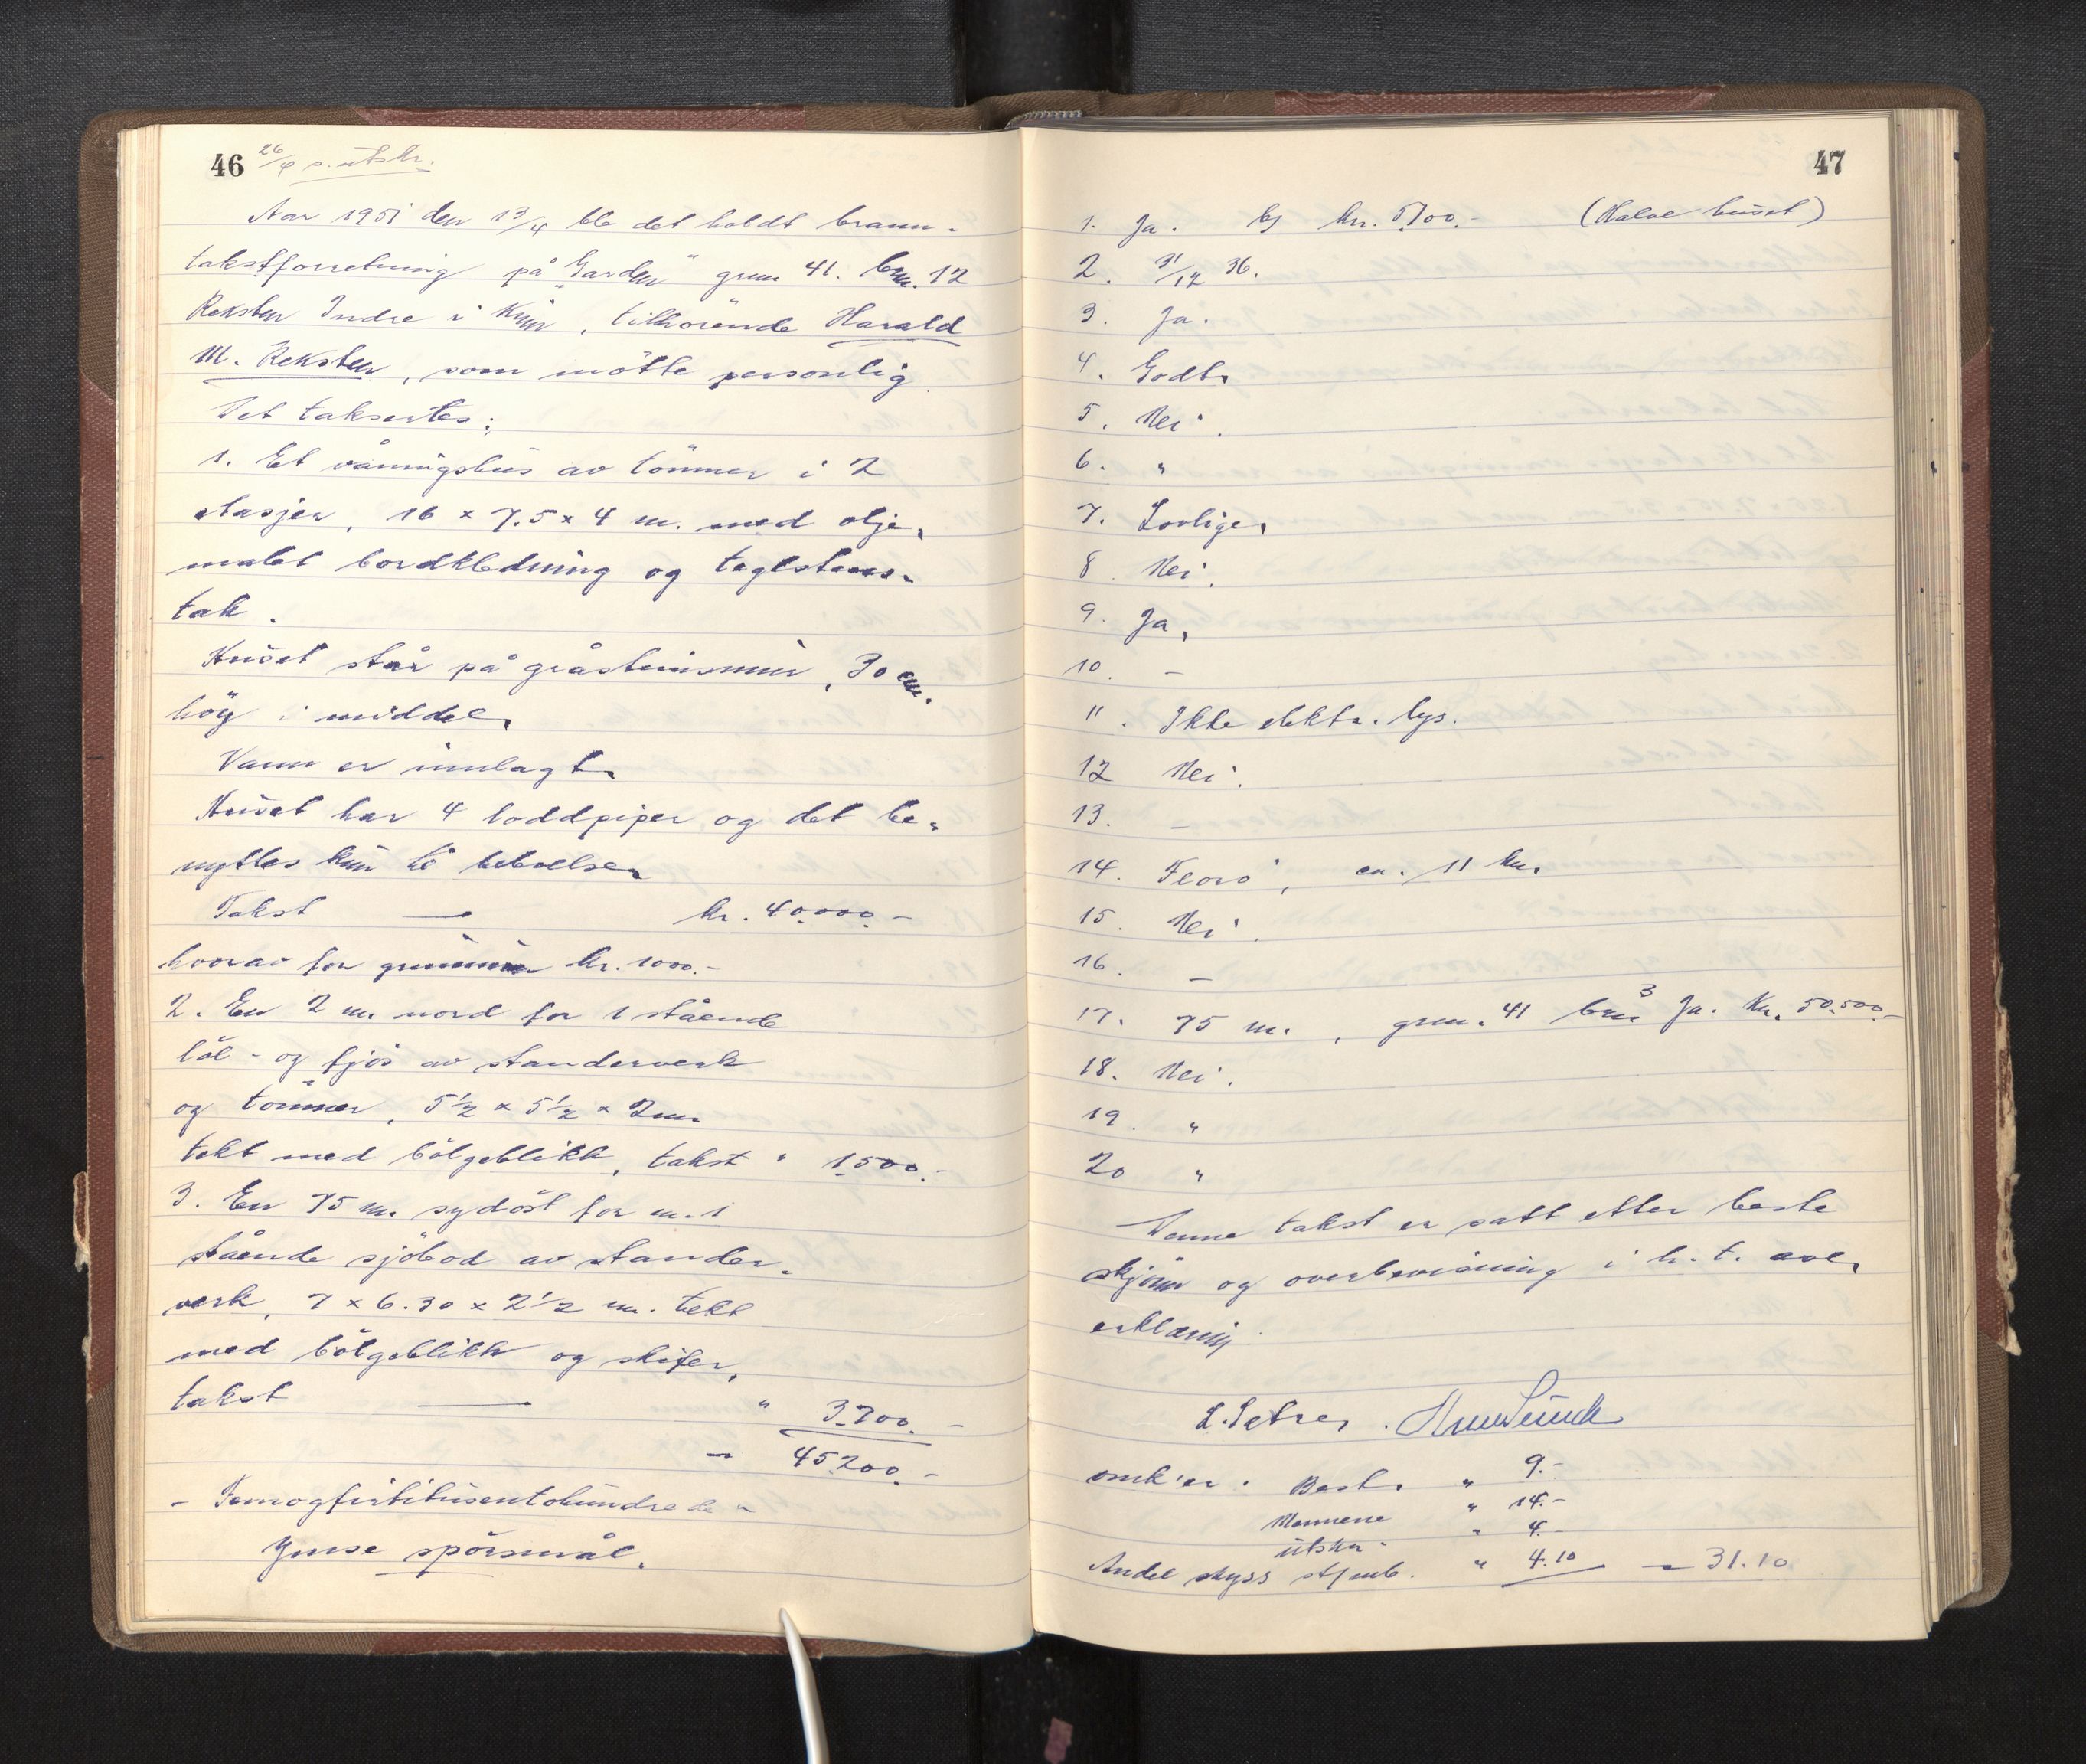 46 26/4 s. utskr.
Aar 1951 den 13/4 ble det holdt brann-
takstforretning på "Garden" grnr 41. bnr. 12
Reksten Indre i Kinn, tilhörende Harald
M. Reksten, som mötte personlig
Det taksertes:
1. Et våningshus av tömmer i 2
stasjer, 16 x 7.5 x 4 m. med olje-
malet bordkledning og taglstens-
tak.
Huset står på gråstensmur, 30 cm.
höy i middel.
Vann er innlagt.
Huset har 4 loddpiper og det be-
nyttes kun til beboelse.
Takst — kr. 40.000.-
hvorav for grunnmur kr. 1000.-
2. En 2 m. nord for 1 stående
löe- og fjös av standerverk
og tömmer, 5½ x 5½ x 2 m.
tekt med bölgeblikk, takst " 1.500.-
3. En 75 m. sydöst for nr. 1
stående sjöbod av stander-
verk, 7 x 6.30 x 2½ m. tekt
med bölgeblikk og skifer,
takst — " 3.700.-
— 45.200.-
- Femogfirtitusentohundrede -
Ymse spörsmål.
47
1. Ja. Bf kr. 5700.- (Halve huset)
2. 31/12 36.
3. Ja.
4. Godt.
5. Nei.
6. "
7. Lovlige.
8. Nei.
9. Ja.
10. —
11. Ikke elektr. lys.
12 Nei.
13. —
14. Florö, ca. 11 km.
15. Nei.
16. —
17. 75 m., grnr. 41 bnr 3 Ja. Kr. 50.500.-
18. Nei.
19. "
20 "
Denne takst er satt etter beste
skjönn og overbevisning i h. t. avl.
erklæring.
L. Setren.
omk'er. Best. " 9.-
Mennene " 14.-
utskr. " 4.-
Andel skyss stfmb. " 4.10 — 31.10